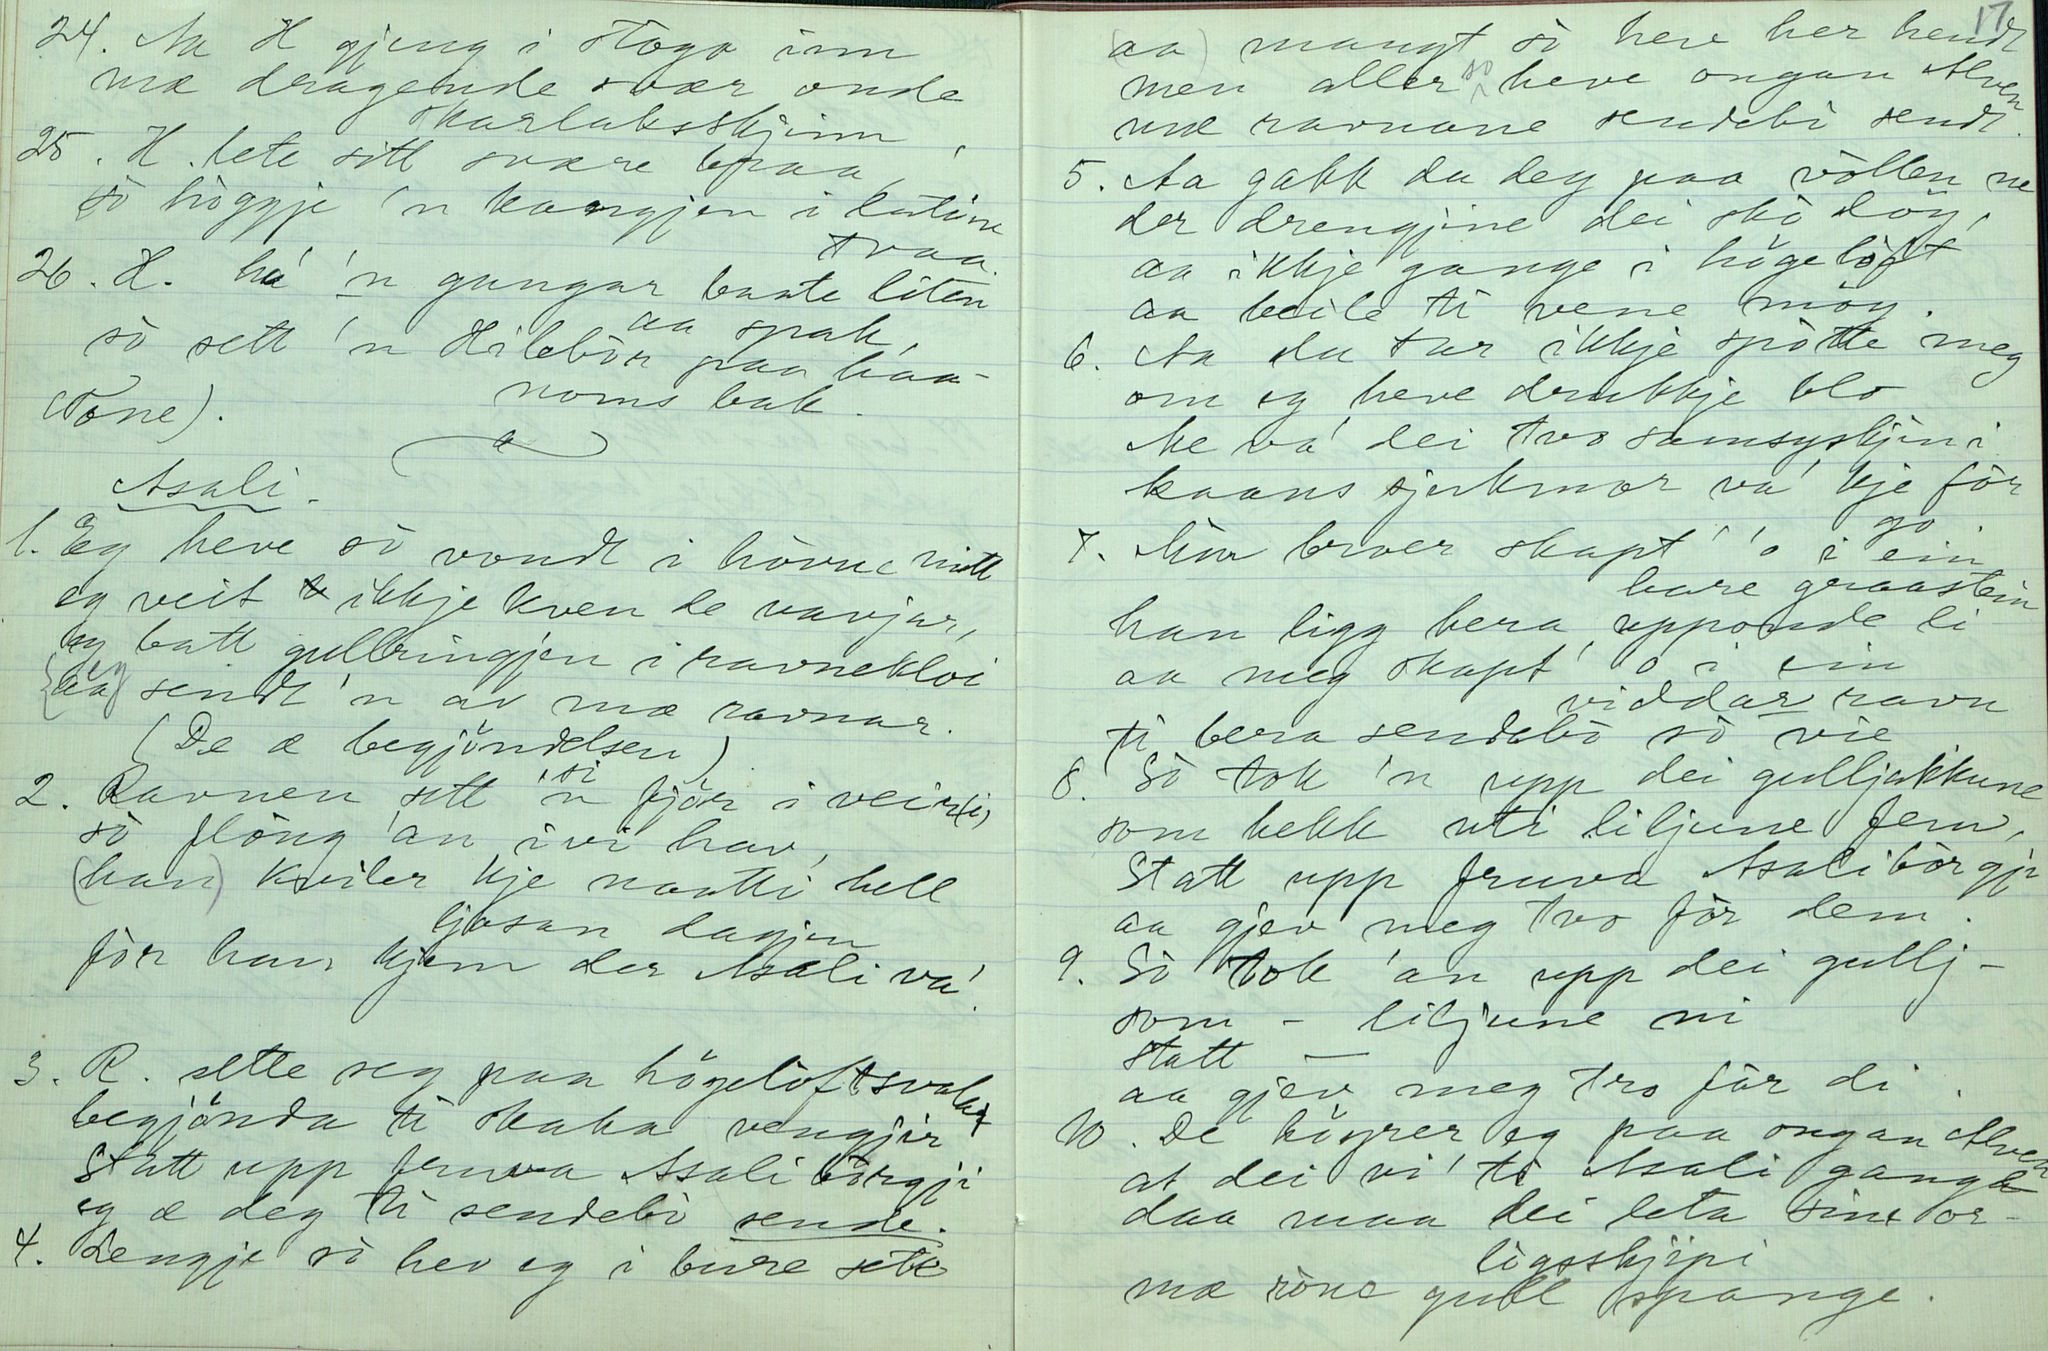 24. Aa H gjeng i stogo inn
mæ dragende svær onde
skarlaksskjinn,
25. H. lete sitt svære braa,
sò hòggje 'n kongjen i lutine
tvaa.
26. H. há 'n gungar baate liten
aa spak,
sò sett 'n Hilebòr paa haa-
noms bak.
(Tone).
Asali.
1. Eg heve sò vondt i hòvue mitt
eg veit ikkje kven de varjar,
eg batt gullringjen i ravneklòi
aa eg sendt 'n av mæ ravnar.
(De æ begjöndelsen)
2. Ravnen sett 'n si fjör i veir(i)
sò flöng 'an ivi hav,
(han) kviler kje nontti hell
ljosan dagjen
för han kjem der Asali va'.
3. R. sette seg paa högeloftsvalir
begjönda ti skaka vengjir
Statt upp fruva Asalibòrgji
eg æ deg ti sendebò sende.
4. Lengje sò hev eg i bure sete
17
(aa) mangt sò heve her hendt
men aller sò heve ongan Alven
mæ ravnane sendebò sendt.
5. Aa gakk du deg paa vòllen ne
der drengjine dei skò döy,
aa ikkje gange i högeloft
aa beile ti vene möy.
6. Aa du tar ikkje spòtte meg
om eg heve drukkje blo
Me va' dei tvo samsyskjin i
kaans sjukmor va' kje fòr
go.
7. Min broer skapt' 'o i ein
bare graastein
han ligg bera upponde li
aa meg skapt' o i ein
viddar ravn
ti bera sendebò sò vie
8. Sò tok 'n upp dei gulljakkune
som hekk uti liljune fem,
Statt upp fruva Asalibòrgji
aa gjev meg tvo fòr dem.
9. Sò tok 'an upp dei gullj –
som – liljune ni
Statt —
aa gjev meg tro fòr di.
10. De höyrer eg paa ongan Alven
at dei vi' ti Asali gange
daa maa dei leta sine or-
lògsskjipi
mæ röue gull spange.